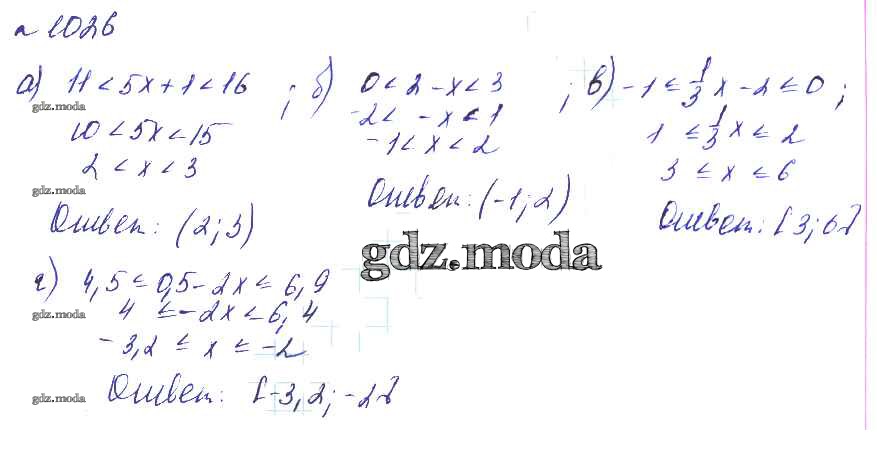 № 1026
а) 11 < 5x + 1 < 16 ; б) 0 < 2 - x < 3 ; в) -1 ≤ 1/3 x - 2 ≤ 0 ;
gdz.moda
10 < 5x < 15
-2 < -x < 1
1 ≤ 1/3 x ≤ 2
2 < x < 3
-1 < x < 2
3 ≤ x ≤ 6
gdz.moda
Ответ: (2; 3)
Ответ: (-1; 2)
Ответ: [3; 6]
gdz.moda
г) 4,5 ≤ 0,5 - 2x ≤ 6,9
gdz.moda
4 ≤ -2x ≤ 6,4
-3,2 ≤ x ≤ -2
gdz.moda
Ответ: [-3,2; -2]